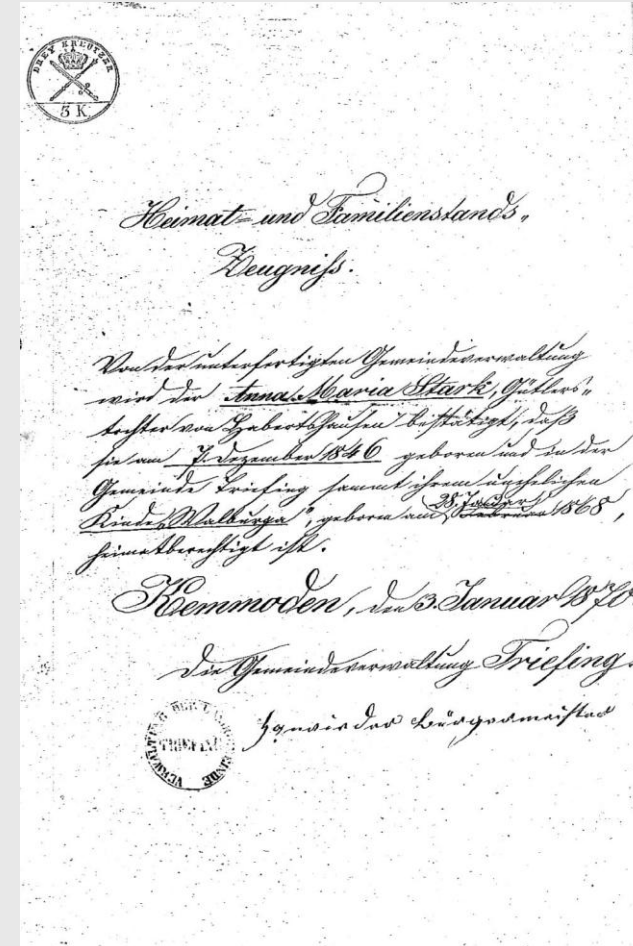 DREY KREUTZER
3 K
Heimat- und Familienstands„
Zeugniß.
Von der unterfertigten Gemeindeverwaltung
wird der Anna Maria Stark, Gütlers„
tochter von Habertshausen bestätigt, daß
sie am 7. Dezember 1846 geboren und in der
Gemeinde Triefing sammt ihrem unehelichen
Kinde „Walburga“, geboren am 28. Januar Februar 1868,
heimatberechtigt ist.
Kemmoden, den 3. Januar 1870
Die Gemeindeverwaltung Triefing.
Bürgermeister
VERWALTUNG DER LANDGEMEINDE
TRIEFING